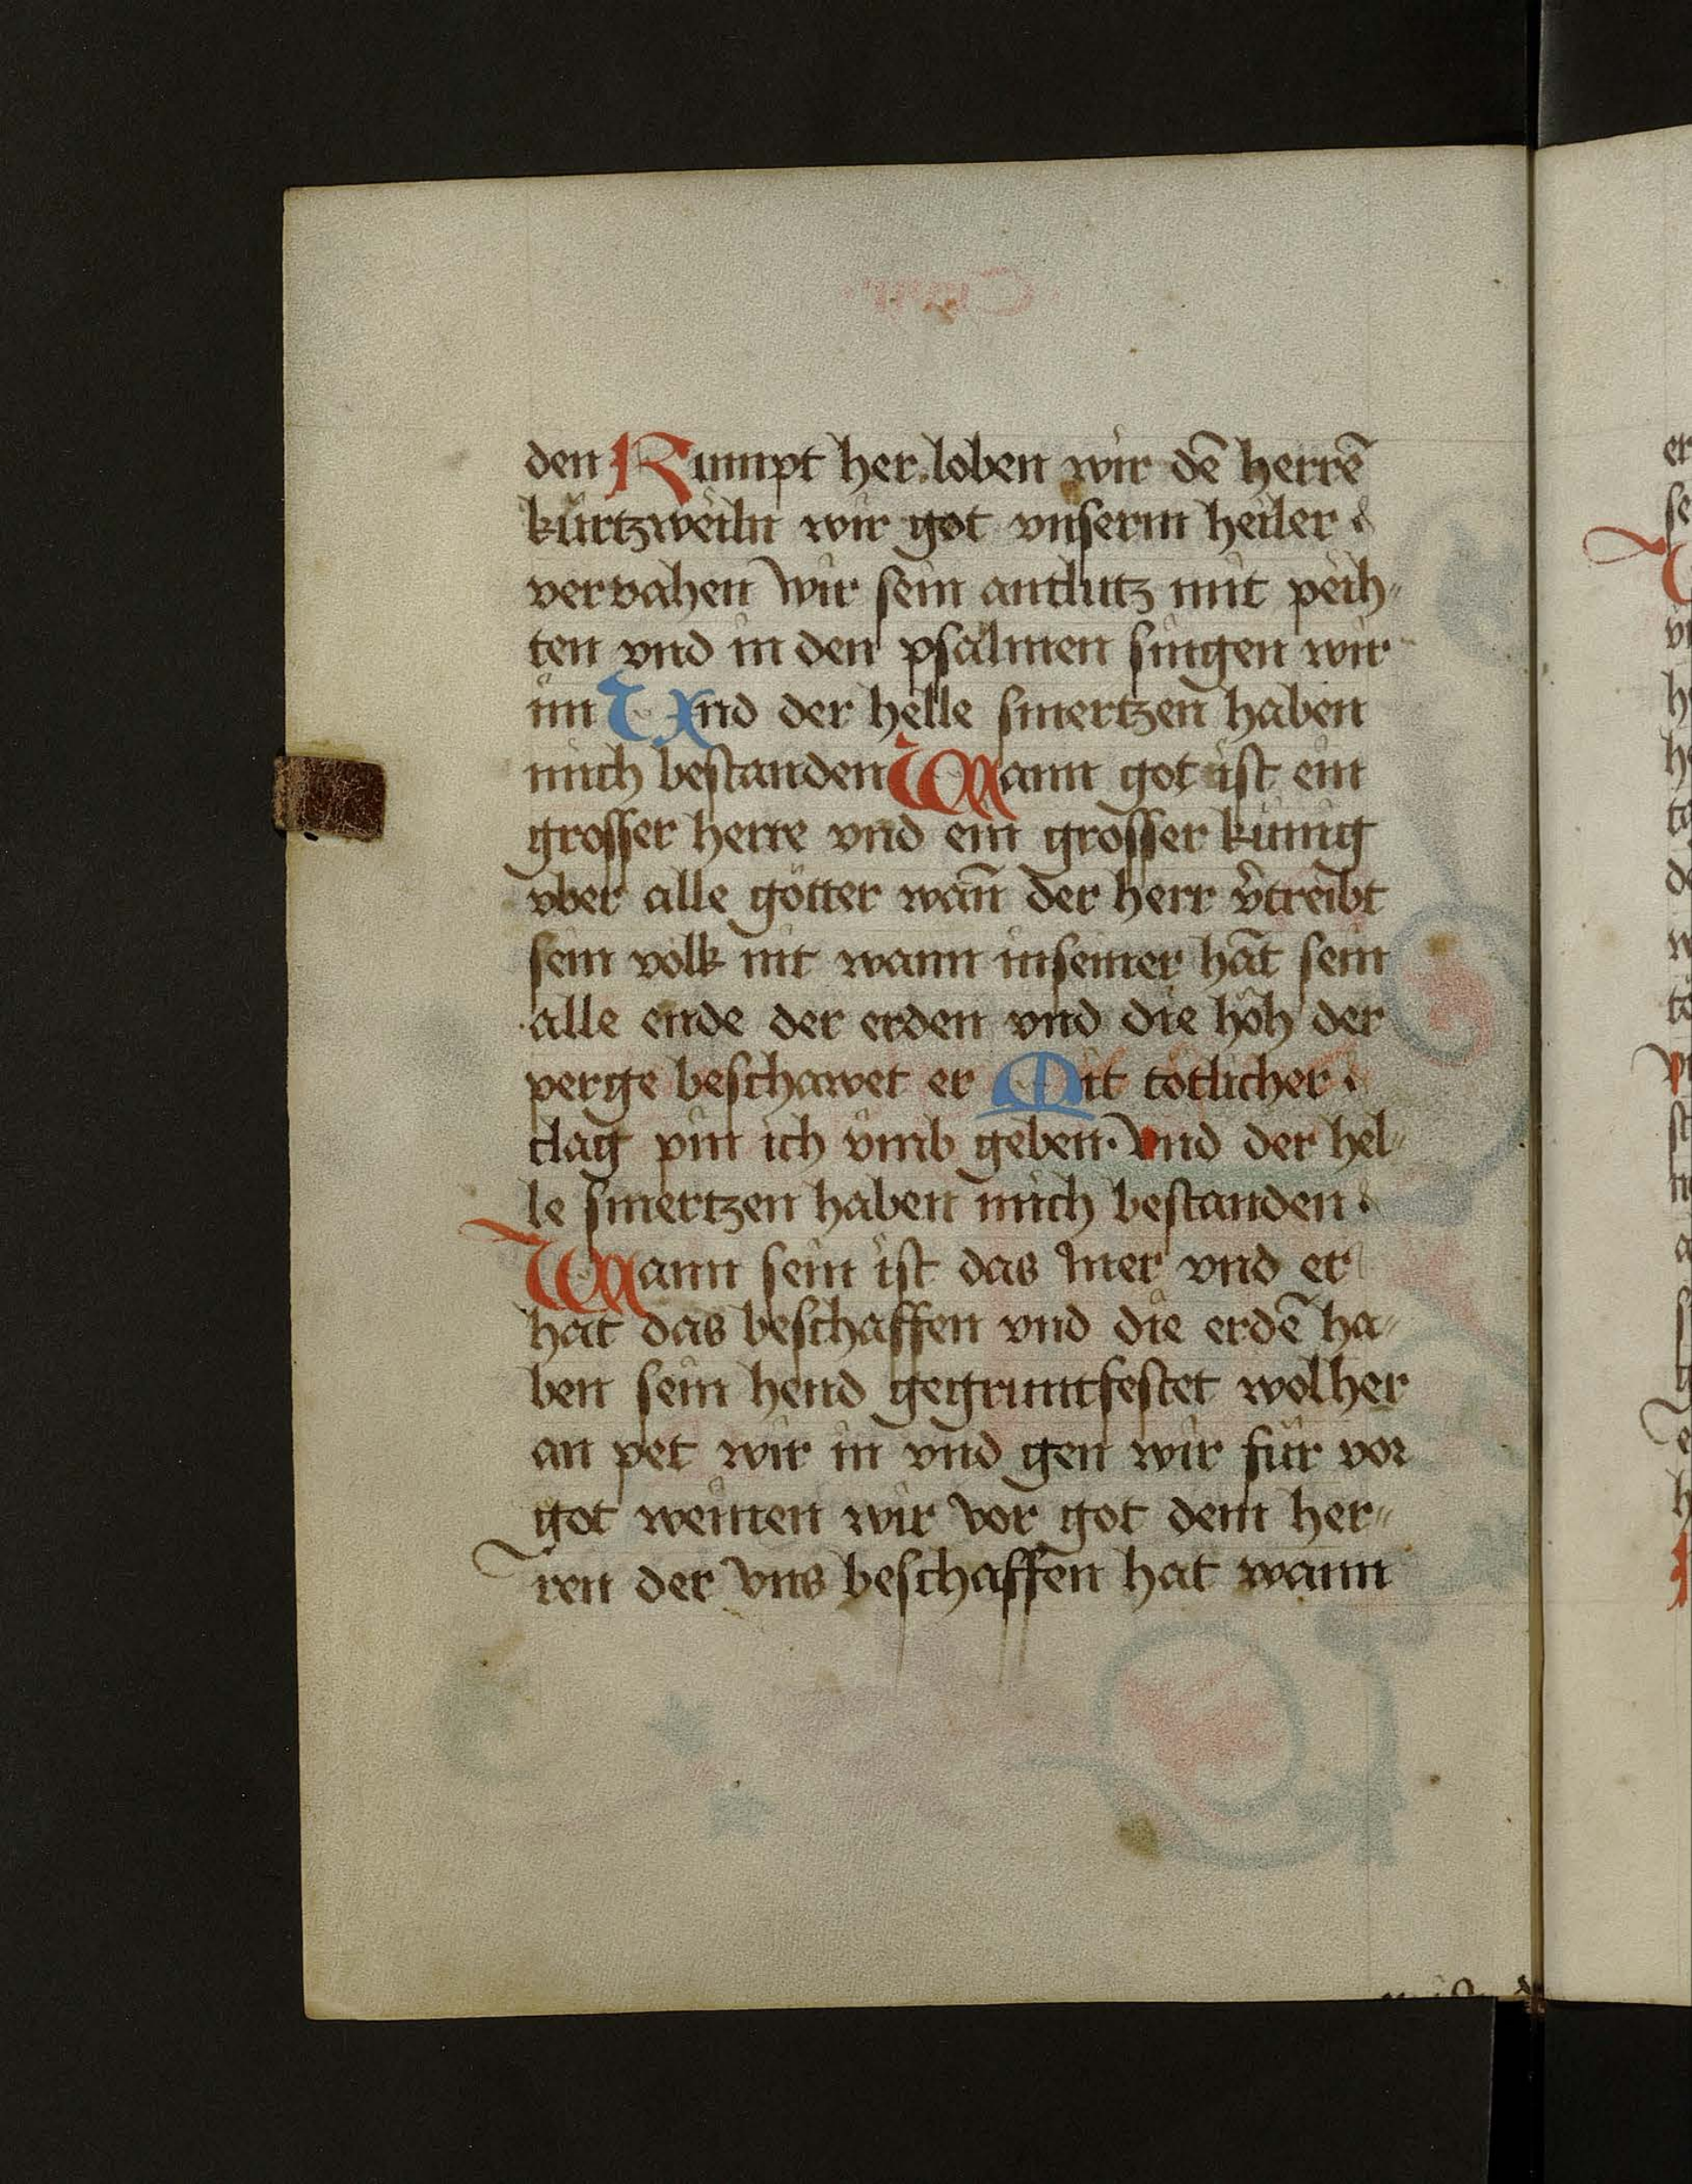 den Kumpt her loben wir dē herrē
kürtzweiln wir got vnserm heiler
vervahen wir sein antlutz mit peih„
ten vnd in den psalmen singen wir
im Und der helle smertzen haben
mich bestanden Wann got ist ein
grosser herre vnd ein grosser künig
vber alle götter wan̄ der herr v̄treibt
sein volk nit wann in seiner hāt sein
alle ende der erden vnd die höh der
perge beschawet er Mit tötlicher
clag pin ich vmb geben. Vnd der hel„
le smertzen haben mich bestanden.
Wann sein ist das mer vnd er
hat das beschaffen vnd die erdē ha„
ben sein hend gegruntfestet wol her
an pet wir in vnd gen wir für vor
got weinen wir vor got dem her„
ren der vns beschaffen hat wann